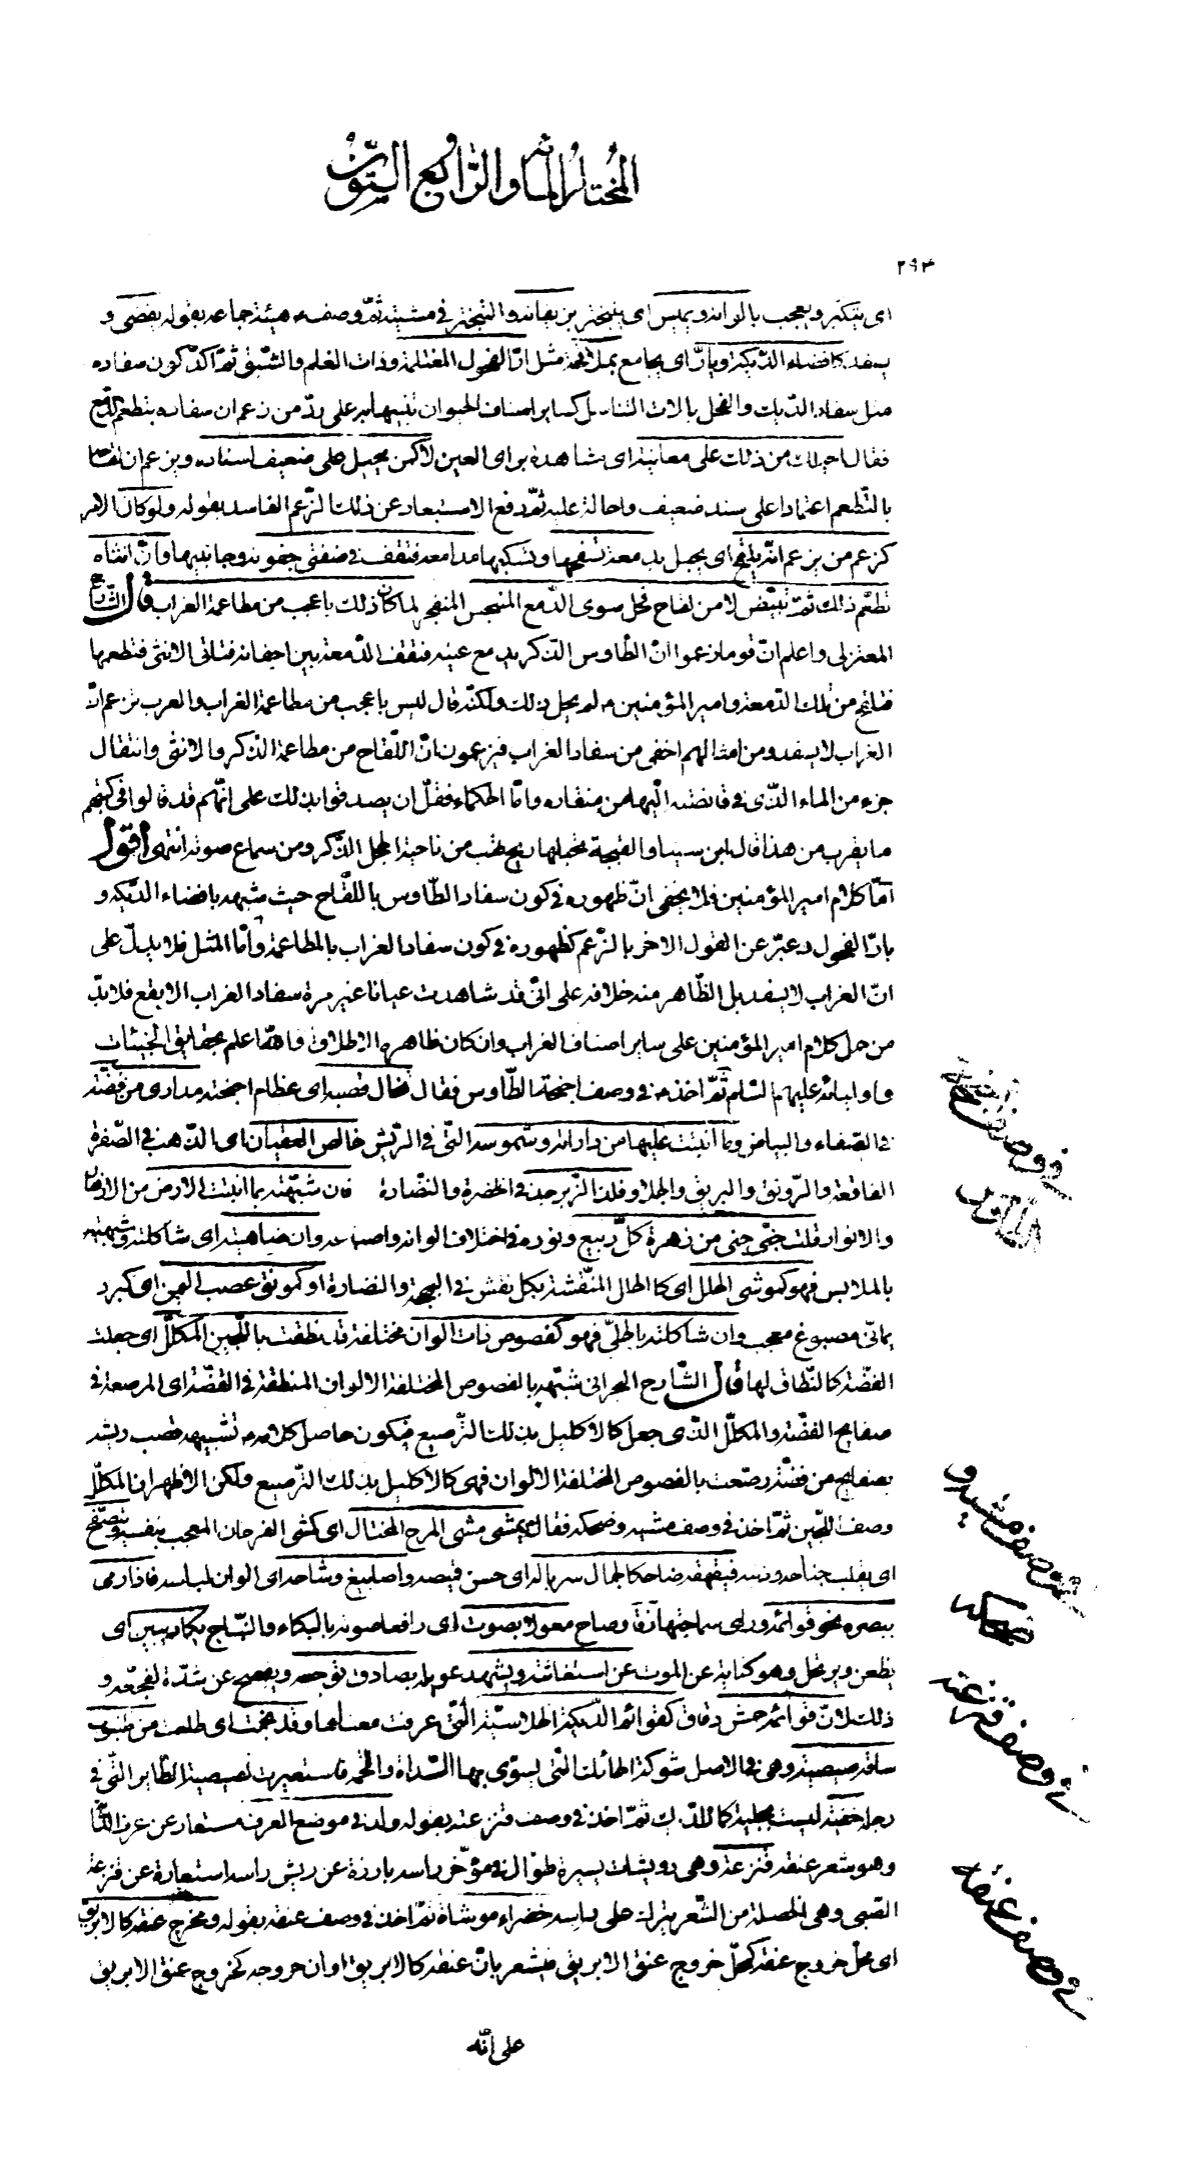 المختار المائة والرابع الستون
٢٩٣
اى يتكبر ويعجب بالوانه ويميس اى يتبختر بزيفانه والتبختر فى مشيته ثم وصف ه هيئة جماعه بقوله يفضى و
يسفد كافضاء الديكة ويارّ اى يجامع بملاقحة مثل ارّ الفحول المغتلمة وذات الغلم والشبق ثم اكد كون سفاده
مثل سفاد الديك والفحل بالات التناسل كساير اصناف الحيوان تنبيها به على ردّ من زعم ان سفاده بتطعم الدمع
فقال احيلك من ذلك على معاينة اى مشاهدة براى العين لا كمن يحيل على ضعيف اسناده ويزعم ان لقاحه
بالتطعم اعتمادا على سند ضعيف واحالة عليه ثم دفع الاستبعاد عن ذلك الزعم الفاسد بقوله ولو كان الامر
كزعم من يزعم انه يلقح اى يحبل بدمعة تسفحها وتسكبها مدامعه فتقف فى ضفتى جفونه وجانبيها وانّ انثاه
تطعم ذلك ثم تبيض لا من لقاح فحل سوى الدمع المنبجس المنفجر لما كان ذلك باعجب من مطاعمة الغراب قال الشارح
المعتزلى واعلم انّ قوما زعموا انّ الطاوس الذكر يدمع عينه فتقف الدمعة بين اجفانه فتاتى الانثى فتطعمها
فتلقح من تلك الدمعة وامير المؤمنين ه لم يحل ذلك ولكنه قال ليس باعجب من مطاعمة الغراب والعرب تزعم انّ
الغراب لا يسفد ومن امثالهم اخفى من سفاد الغراب فيزعمون انّ اللقاح من مطاعمة الذكر والانثى وانتقال
جزء من الماء الذى فى قانصته اليها من منقاره وامّا الحكماء فقلّ ان يصدقوا بذلك على انهم قد قالوا فى كتبهم
ما يقرب من هذا قال ابن سينا والقبجة تحبلها ريح تهب من ناحية الحجل الذكر ومن سماع صوته انتهى اقول
امّا كلام امير المؤمنين فلا يخفى انّ ظهوره فى كون سفاد الطاوس باللقاح حيث شبهه بافضاء الديكه و
بارّ الفحول وعبّر عن القول الاخر بالزعم كظهوره فى كون سفاد الغراب بالمطاعمة وامّا المثل فلا يدلّ على
انّ الغراب لا يسفد بل الظاهر منه خلافه على انّى قد شاهدت عيانا غير مرة سفاد الغراب الابقع فلا بدّ
من حمل كلام امير المؤمنين على ساير اصناف الغراب وان كان ظاهره الاطلاق والله اعلم بحقايق الخبيئات
واوليائه عليهم السلم ثم اخذ ه فى وصف اجنحة الطاوس فقال تخال قصبه اى عظام اجنحته مدارى من فضة
فى الصفاء والبياض وما انبتت عليها من داراته وشموسه التى فى الريش خالص العقيان اى الذهب فى الصفرة
الفاقعة والرونق والبريق والجلا وفلذ الزبرجد فى الخضرة والنضارة فان شبهته بما انبتت الارض من الازهار
والانوار قلت جنى جنى من زهرة كلّ ربيع ونوره فى اختلاف الوانه واصباغه وان ضاهيته اى شاكلته وشبهته
بالملابس فهو كموشى الحلل اى كالحلل المنقشة بكل نقش فى البهجة والنضارة او كمونق عصب اليمن اى كبرد
يمانى مصبوغ معجب وان شاكلته بالحلىّ فهو كفصوص ذات الوان مختلفة قد نطقت باللجين المكلّل اى جعلت
الفضة كالنطاق لها قال الشارح البحرانى شبهه بالفصوص المختلفة الالوان المنطقة فى الفضة اى المرصعة فى
صفايح الفضة والمكلّل الذى جعل كالاكليل بذلك الترصيع فيكون حاصل كلامه ه تشبيهه قصب ريشه
بصفايح من فضة رصّعت بالفصوص المختلفة الالوان فهى كالاكليل بذلك الترصيع ولكن الاظهر ان المكلل
وصف اللجين ثم اخذ فى وصف مشيه وضحكه فقال ه يمشى مشى المرح المختال اى كمشى الفرحان المعجب بنفسه ويتصفح
اى يقلب جناحه وذنبه فيقهقه ضاحكا لجمال سرباله اى حسن قميصه واصابيغ وشاحه اى الوان لباسه فاذا رمى
ببصره نحو قوائمه وراى سماجتها زقا وصاح معولا بصوت اى رافعا صوته بالبكاء والصياح يكاد يبين اى
يظعن ويرتحل وهو كناية عن الموت عن استغاثته ويشهد عويله بصادق توجعه ويفصح عن شدّة تفجعه و
ذلك لانّ قوائمه حمش دقاق كقوائم الديكة الخلاسيّة التى عرفت معناها وقد نجمت اى طلعت من ظنبوب
ساقه صيصية وهى فى الاصل شوكة الحائك التى يسوّى بها السداة واللحمة فاستعيرت لصيصية الطاير التى فى
رجله خفيّة ليست بجلية كما للديك ثم اخذ فى وصف قنزعته بقوله وله فى موضع العرف مستعار عن عرف الدابة
وهو شعر عنقه قنزعة وهى رويشات يسيرة طوال فى مؤخر راسه بارزة عن ريش راسه استعارة عن قنزعة
الصبى وهى الخصلة من الشعر يترك على راسه خضراء موشاة ثم اخذ فى وصف عنقه بقوله ومخرج عنقه كالابريق
اى محل خروج عنقه كمحلّ خروج عنق الابريق فيشعر بانّ عنقه كالابريق او ان خروجه كخروج عنق الابريق
على انّه
فى وصف اجنحة
الطاوس
فى وصف مشيه و
ضحكه
فى وصف قنزعته
فى وصف عنقه